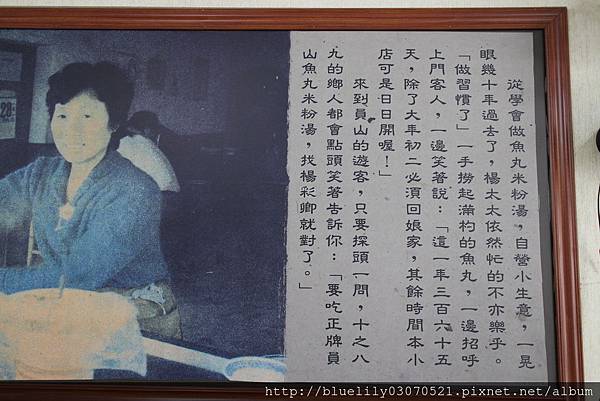 從學會做魚丸米粉湯，自營小生意，一晃
眼幾十年過去了，楊太太依然忙的不亦樂乎。
「做習慣了」一手撈起滿杓的魚丸，一邊招呼
上門客人，一邊笑著說：「這一年三百六十五
天，除了大年初二必須回娘家，其餘時間本小
店可是日日開喔！」
來到員山的遊客，只要探頭一問，十之八
九的鄉人都會點頭笑著告訴你：「要吃正牌員
山魚丸米粉湯，找楊彩卿就對了。」
28
http://bluelily03070521.pixnet.net/album